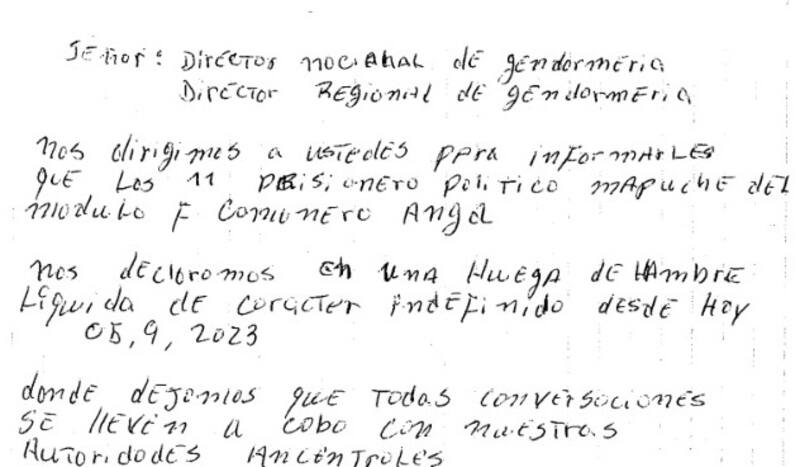 Señor: Director nocianal de gendarmeria
Director Regional de gendarmeria
nos dirigimos a ustedes para informarles
que los 11 prisionero politico mapuche del
modulo F comunero Angol
nos declaramos en una Huega de Hambre
Líquida de caracter indefinido desde Hoy
05,9,2023
donde dejamos que todas conversaciones
se lleven a cabo con nuestras
Autoridades Ancentrales